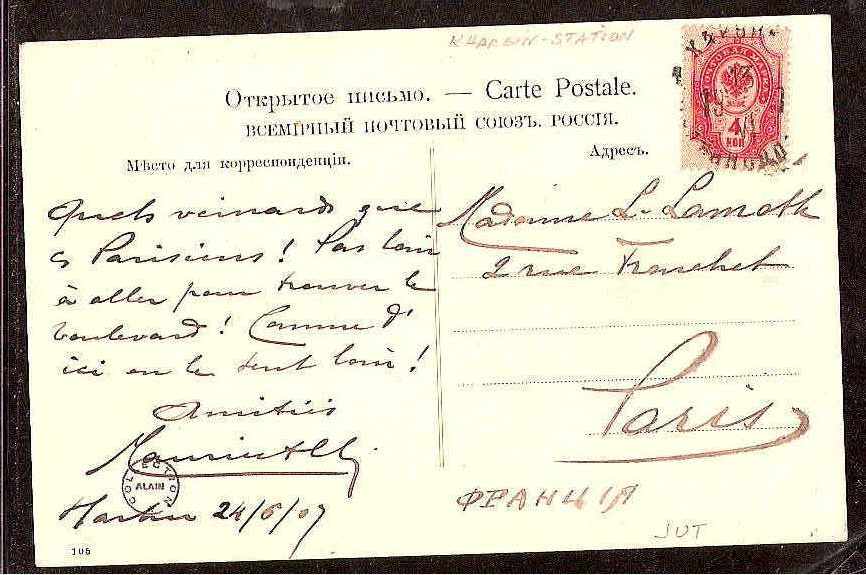 KHARBIN-STATION
Открытое письмо. — Carte Postale.
ВСЕМІРНЫЙ ПОЧТОВЫЙ СОЮЗЪ. РОССІЯ.
Мѣсто для корреспонденціи.
Адресъ.
4
КОП
Quels veinards que
ces Parisiens! Pas loin
à aller pour trouver le
boulevard! Comme d'
ici on le sent loin!
Amitiés
COLLECTION
ALAIN
Harbin 24/6/07
105
Madame L. Lamoth
2 rue Tronchet
Paris
ФРАНЦІЯ
JUT